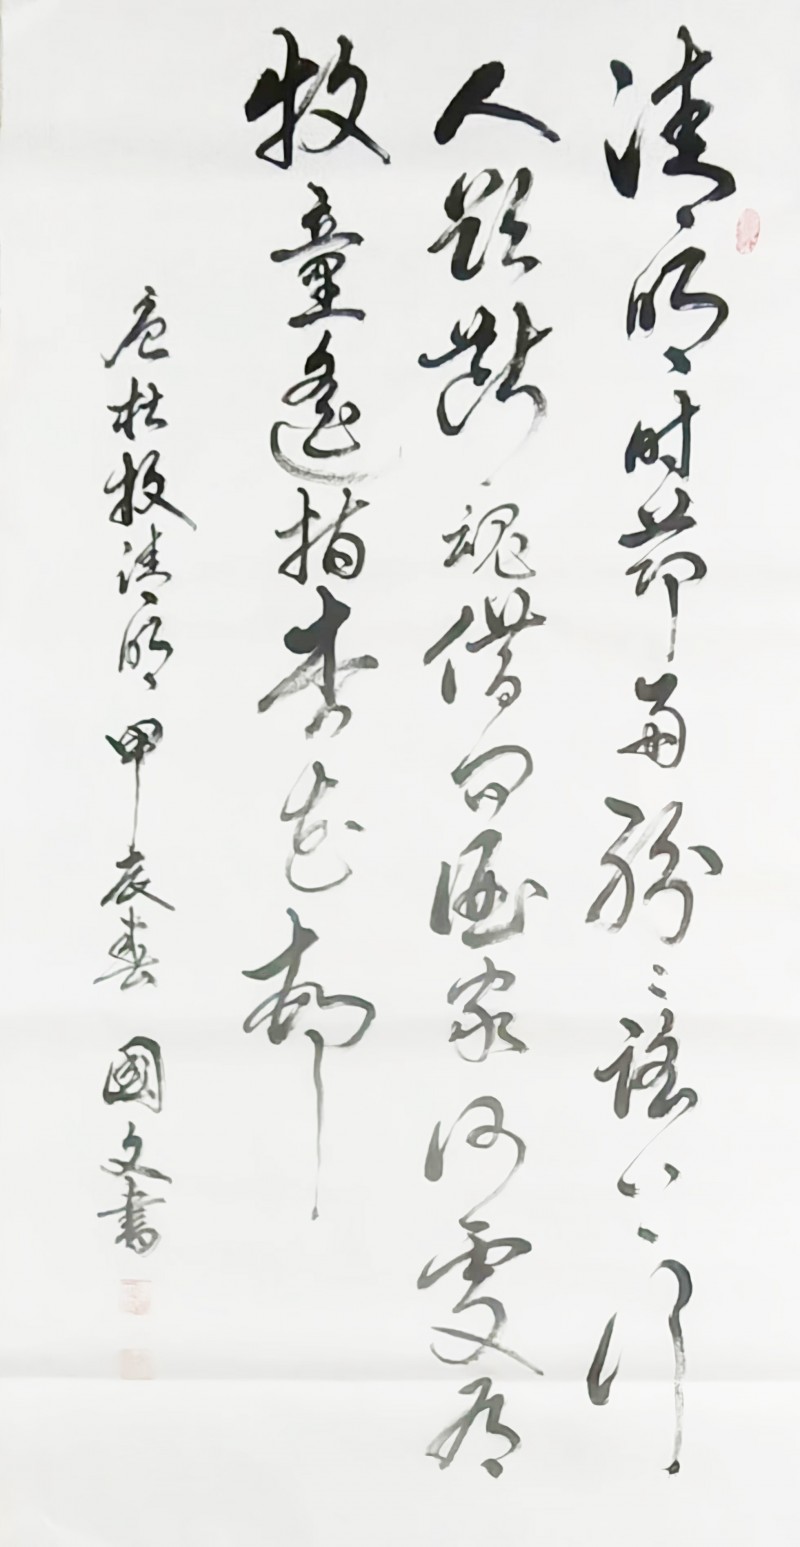 清明时节雨纷纷路上行
人欲断魂借问酒家何处有
牧童遥指杏花邨
唐杜牧清明 甲辰春 國文書